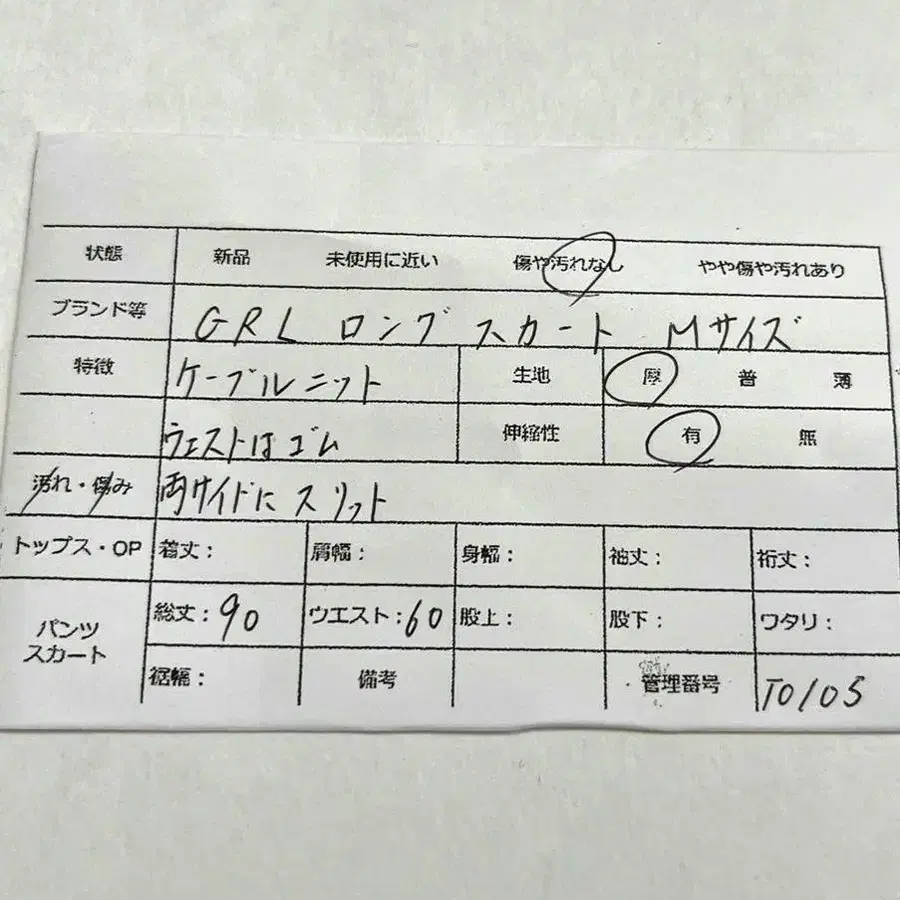 状態 新品 未使用に近い 傷や汚れなし やや傷や汚れあり
ブランド等 GRL ロングスカート Mサイズ
特徴 ケーブルニット 生地 厚 普 薄
ウエストはゴム 伸縮性 有 無
汚れ・傷み 両サイドにスリット
トップス・OP 着丈： 肩幅： 身幅： 袖丈： 裄丈：
パンツ スカート 総丈：90 ウエスト：60 股上： 股下： ワタリ：
裾幅： 備考 管理番号 T0105